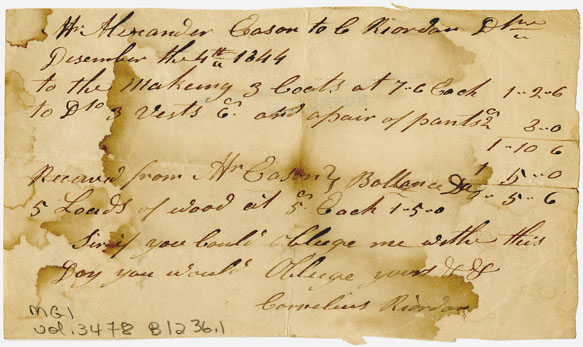 Mr Alexander Eason to C Riordan Dr
Desember the 4th 1844
to the Making 3 Coats at 7-6 Each 1-2-6
to Dto 3 Vests and a pair of pants
3-0
1-10 6
Received from Mr Eason Ballance Due 5-6
1 5-0
5 Loads of wood at 5 Each 1-5-0
Sir if you Could Obleuge me with this
Day you would Obleuge yours &c &c
Cornelius Riordan
MG.1
vol. 3478 B1236.1